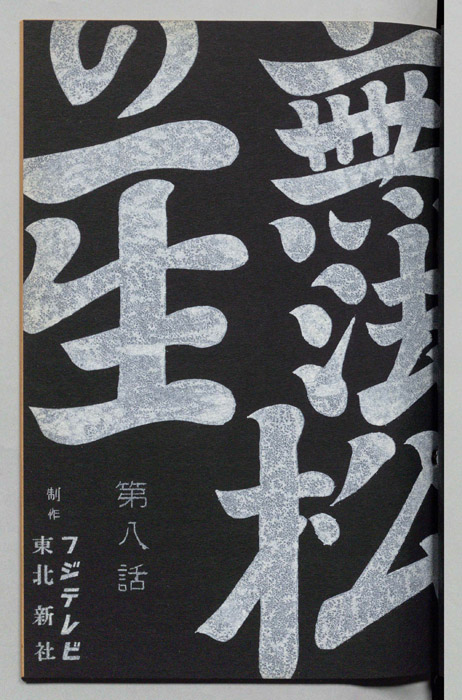 無法松
の一生
第八話
制作
フジテレビ
東北新社